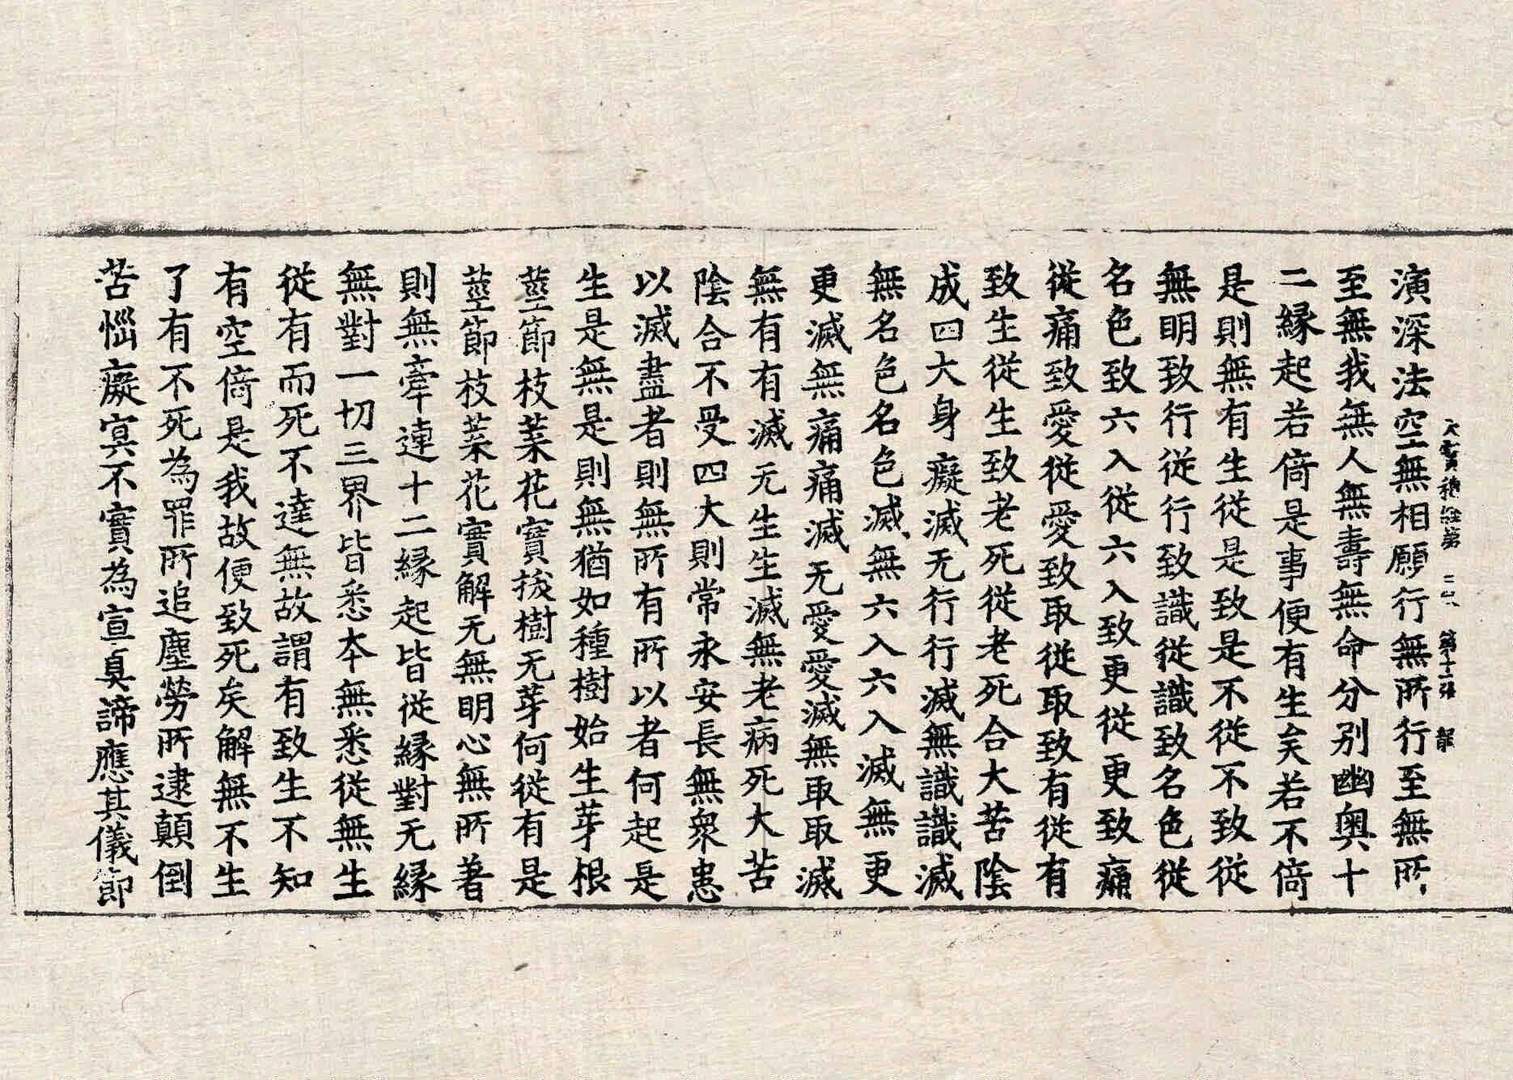 大寶積經第 第十三張 龍
演深法空無相願行無所行至無所
至無我無人無壽無命分別幽奧十
二緣起若倚是事便有生矣若不倚
是則無有生從是致是不從不致從
無明致行從行致識從識致名色從
名色致六入從六入致更從更致痛
從痛致愛從愛致取從取致有從有
致生從生致老死從老死合大苦陰
成四大身癡滅无行行滅無識識滅
無名色名色滅無六入六入滅無更
更滅無痛痛滅无愛愛滅無取取滅
無有有滅无生生滅無老病死大苦
陰合不受四大則常永安長無眾患
以滅盡者則無所有所以者何起是
生是無是則無猶如種樹始生芽根
莖節枝葉花實拔樹无芽何從有是
莖節枝葉花實解无無明心無所著
則無牽連十二緣起皆從緣對无緣
無對一切三界皆悉本無悉從無生
從有而死不達無故謂有致生不知
有空倚是我故便致死矣解無不生
了有不死為罪所追塵勞所逮顛倒
苦惱癡冥不實為宣真諦應其儀節